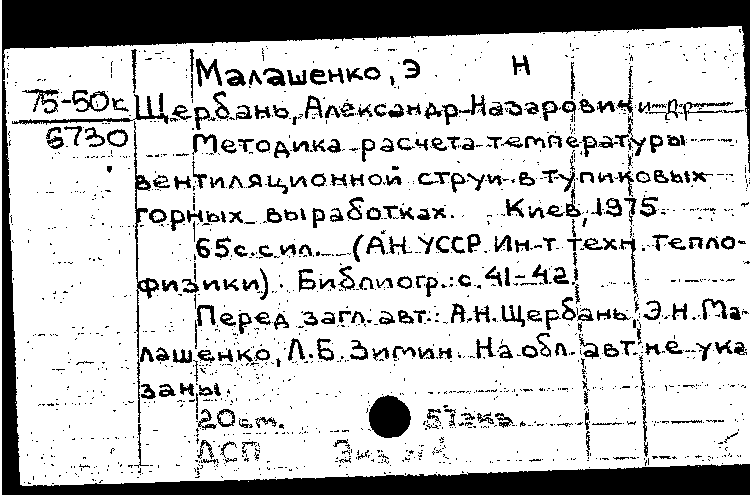 Малашенко, Э Н
75-50к Щербань, Александр Назарович и др
6730 Методика расчета температуры
вентиляционной струи в тупиковых
горных выработках. Киев, 1975.
65с.с ил. (АН УССР. Ин-т техн. тепло-
физики). Библиогр.: с. 41-42
Перед загл. авт.: А.Н.Щербань, Э.Н.Ма-
лашенко, Л.Б.Зимин. На обл. авт. не ука
заны.
20см. 57экз.
ДСП Экз